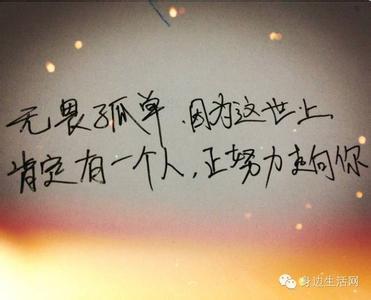 无畏孤单.因为这世上,
肯定有一个人,正努力走向你
身边生活网